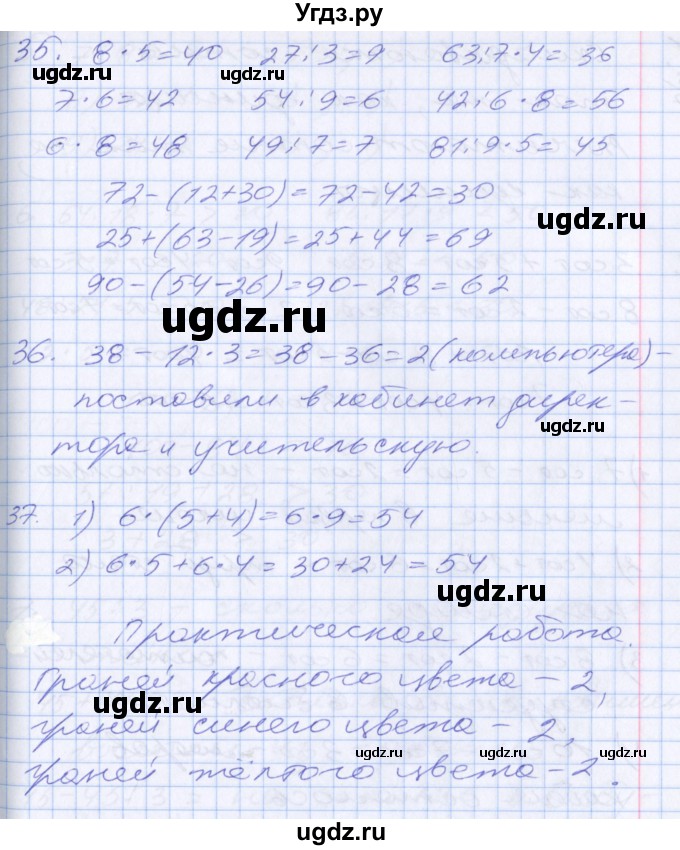 Угдз.ру
35. 8·5=40 27:3=9 63:7·4=36
7·6=42 54:9=6 42:6·8=56
6·8=48 49:7=7 81:9·5=45
72-(12+30)=72-42=30
25+(63-19)=25+44=69
90-(54-26)=90-28=62
36. 38-12·3=38-36=2(компьютера)-
поставили в кабинет дирек-
тора и учительскую.
37. 1) 6·(5+4)=6·9=54
2) 6·5+6·4=30+24=54
Практическая работа.
Граней красного цвета - 2,
граней синего цвета - 2,
граней жёлтого цвета - 2.
ugdz.ru